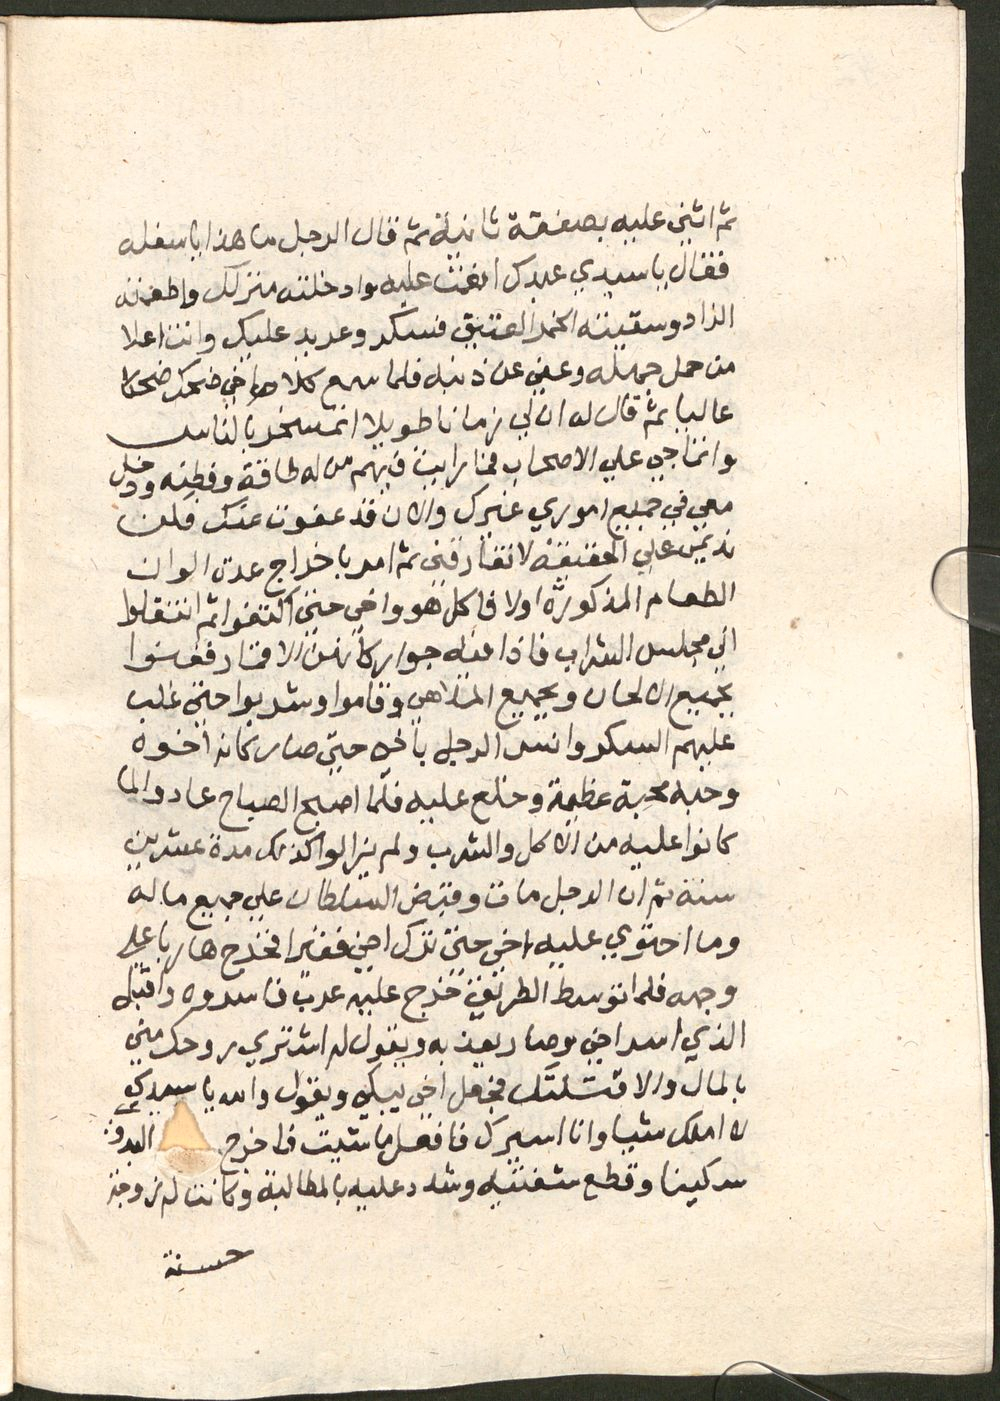 ثم اثني عليه بصفقة ثانية ثم قال الرجل ما هذا يا سفله
فقال يا سيدي عبدك انعمت عليه وادخلته منزلك واطعمته
الزاد وسقيته الخمر العتيق فسكر وعربد عليك وانت اعلا
من حمل جهله وعفي عن ذنبه فلما سمع كلام اخي ضحك ضحكا
عاليا ثم قال له ان لي زمانا طويلا اتمسخر بالناس
واتماجي علي الاصحاب فما رايت فيهم من له طاقة وفطنه ودخل
معي في جميع اموري غيرك والان قد عفوت عنك فكن
نديمي علي الحقيقة لا تفارقني ثم امر باخراج عدت الوان
الطعام المذكورة اولا فاكل هو واخي حتي اكتفوا ثم انتقلوا
الي مجلس الشراب فاذا فيه جوار كانهن الاقمار فغنوا
بجميع الالحان وبجميع الملاهي وقاموا وشربوا حتي غلب
عليهم السكر وانس الرجل باخي حتي صار كانه اخوه
وحبه محبة عظيمة وخلع عليه فلما اصبح الصباح عادوا لما
كانوا عليه من الاكل والشرب ولم يزالوا كذلك مدة عشرين
سنة ثم ان الرجل مات وقبض السلطان علي جميع ماله
وما احتوي عليه اخي حتي ترك اخي فقيرا فخرج هاربا علي
وجهه فلما توسط الطريق خرج عليه عرب فاسروه واقبل
الذي اسر اخي وصار يعذبه ويقول له اشتري روحك مني
بالمال والا قتلتك فجعل اخي يبكي ويقول والله يا سيدي
لا املك شيا وانا اسيرك فافعل ما شيت فاخرج البدوي
سكينا وقطع شفتيه وشدد عليه بالمطالبة وكانت له زوجة
حسنة